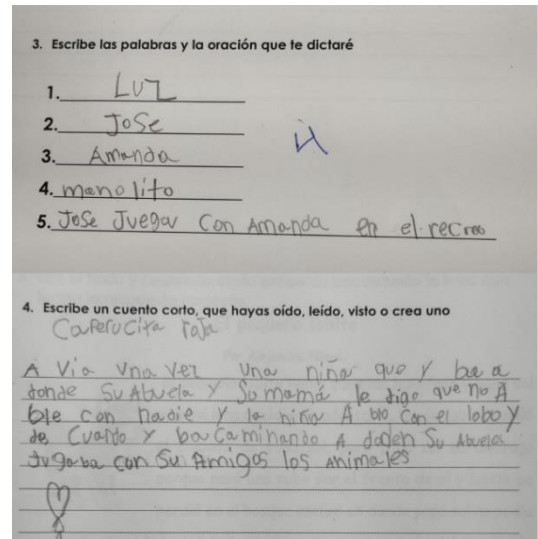 3. Escribe las palabras y la oración que te dictaré
1. LUZ
2. JoSe
3. Amanda
4. manolito
5. JoSe Juega Con Amanda en el recreo
4. Escribe un cuento corto, que hayas oído, leído, visto o crea uno
Caperucita roja
A Via Una Ver Una niña que y ba a
donde Su Abuela y Su mamá le digo que no A
ble con nadie y la niña A blo Con el lobo y
de Cuando y ba Caminando A Su Abuela
Jugaba con Su Amigos los animales